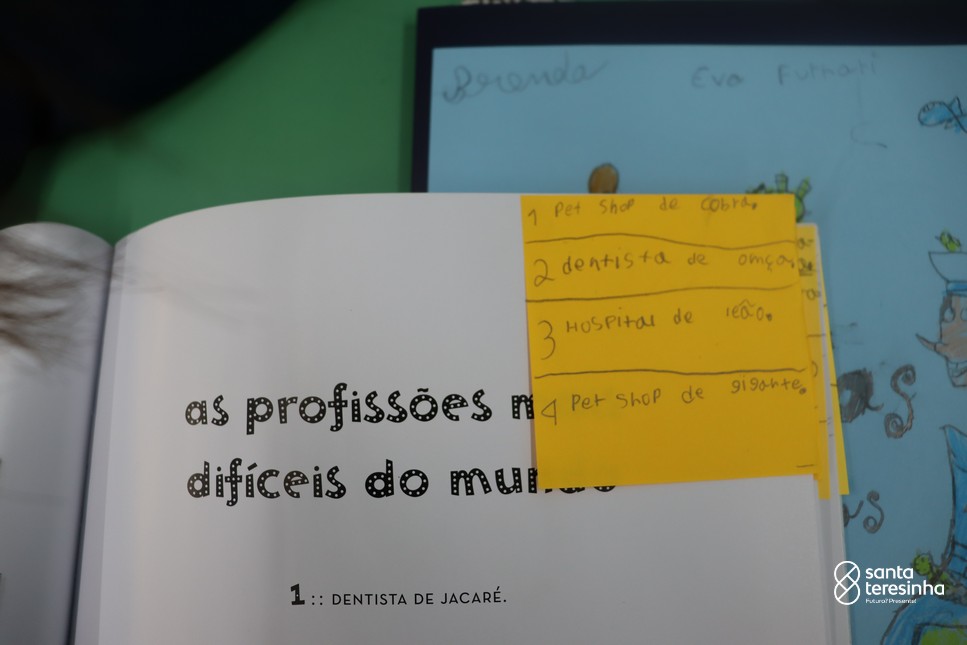 Brenda Eva Furnari
1 Pet shop de cobra.
2 dentista de omça.
3 Hospital de leão.
4 Pet shop de gigante.
as profissões m
difíceis do mundo
1 :: DENTISTA DE JACARÉ.
santa
teresinha
Futuro? Presente!